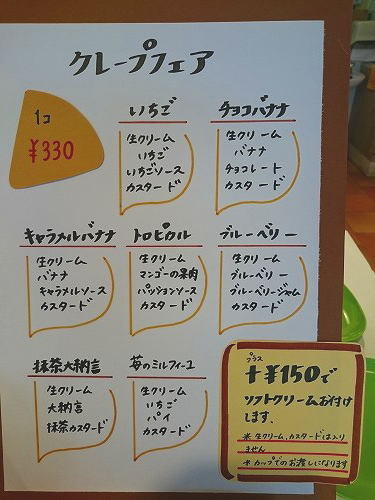 クレープフェア
1コ
¥330
いちご
生クリーム
いちご
いちごソース
カスタード
チョコバナナ
生クリーム
バナナ
チョコレート
カスタード
キャラメルバナナ
生クリーム
バナナ
キャラメルソース
カスタード
トロピカル
生クリーム
マンゴーの果肉
パッションソース
カスタード
ブルーベリー
生クリーム
ブルーベリー
ブルーベリージャム
カスタード
抹茶大納言
生クリーム
大納言
抹茶カスタード
苺のミルフィーユ
生クリーム
いちご
パイ
カスタード
プラス
+¥150で
ソフトクリームお付け
します。
※生クリーム、カスタードは入り
ません
※カップでのお渡しになります